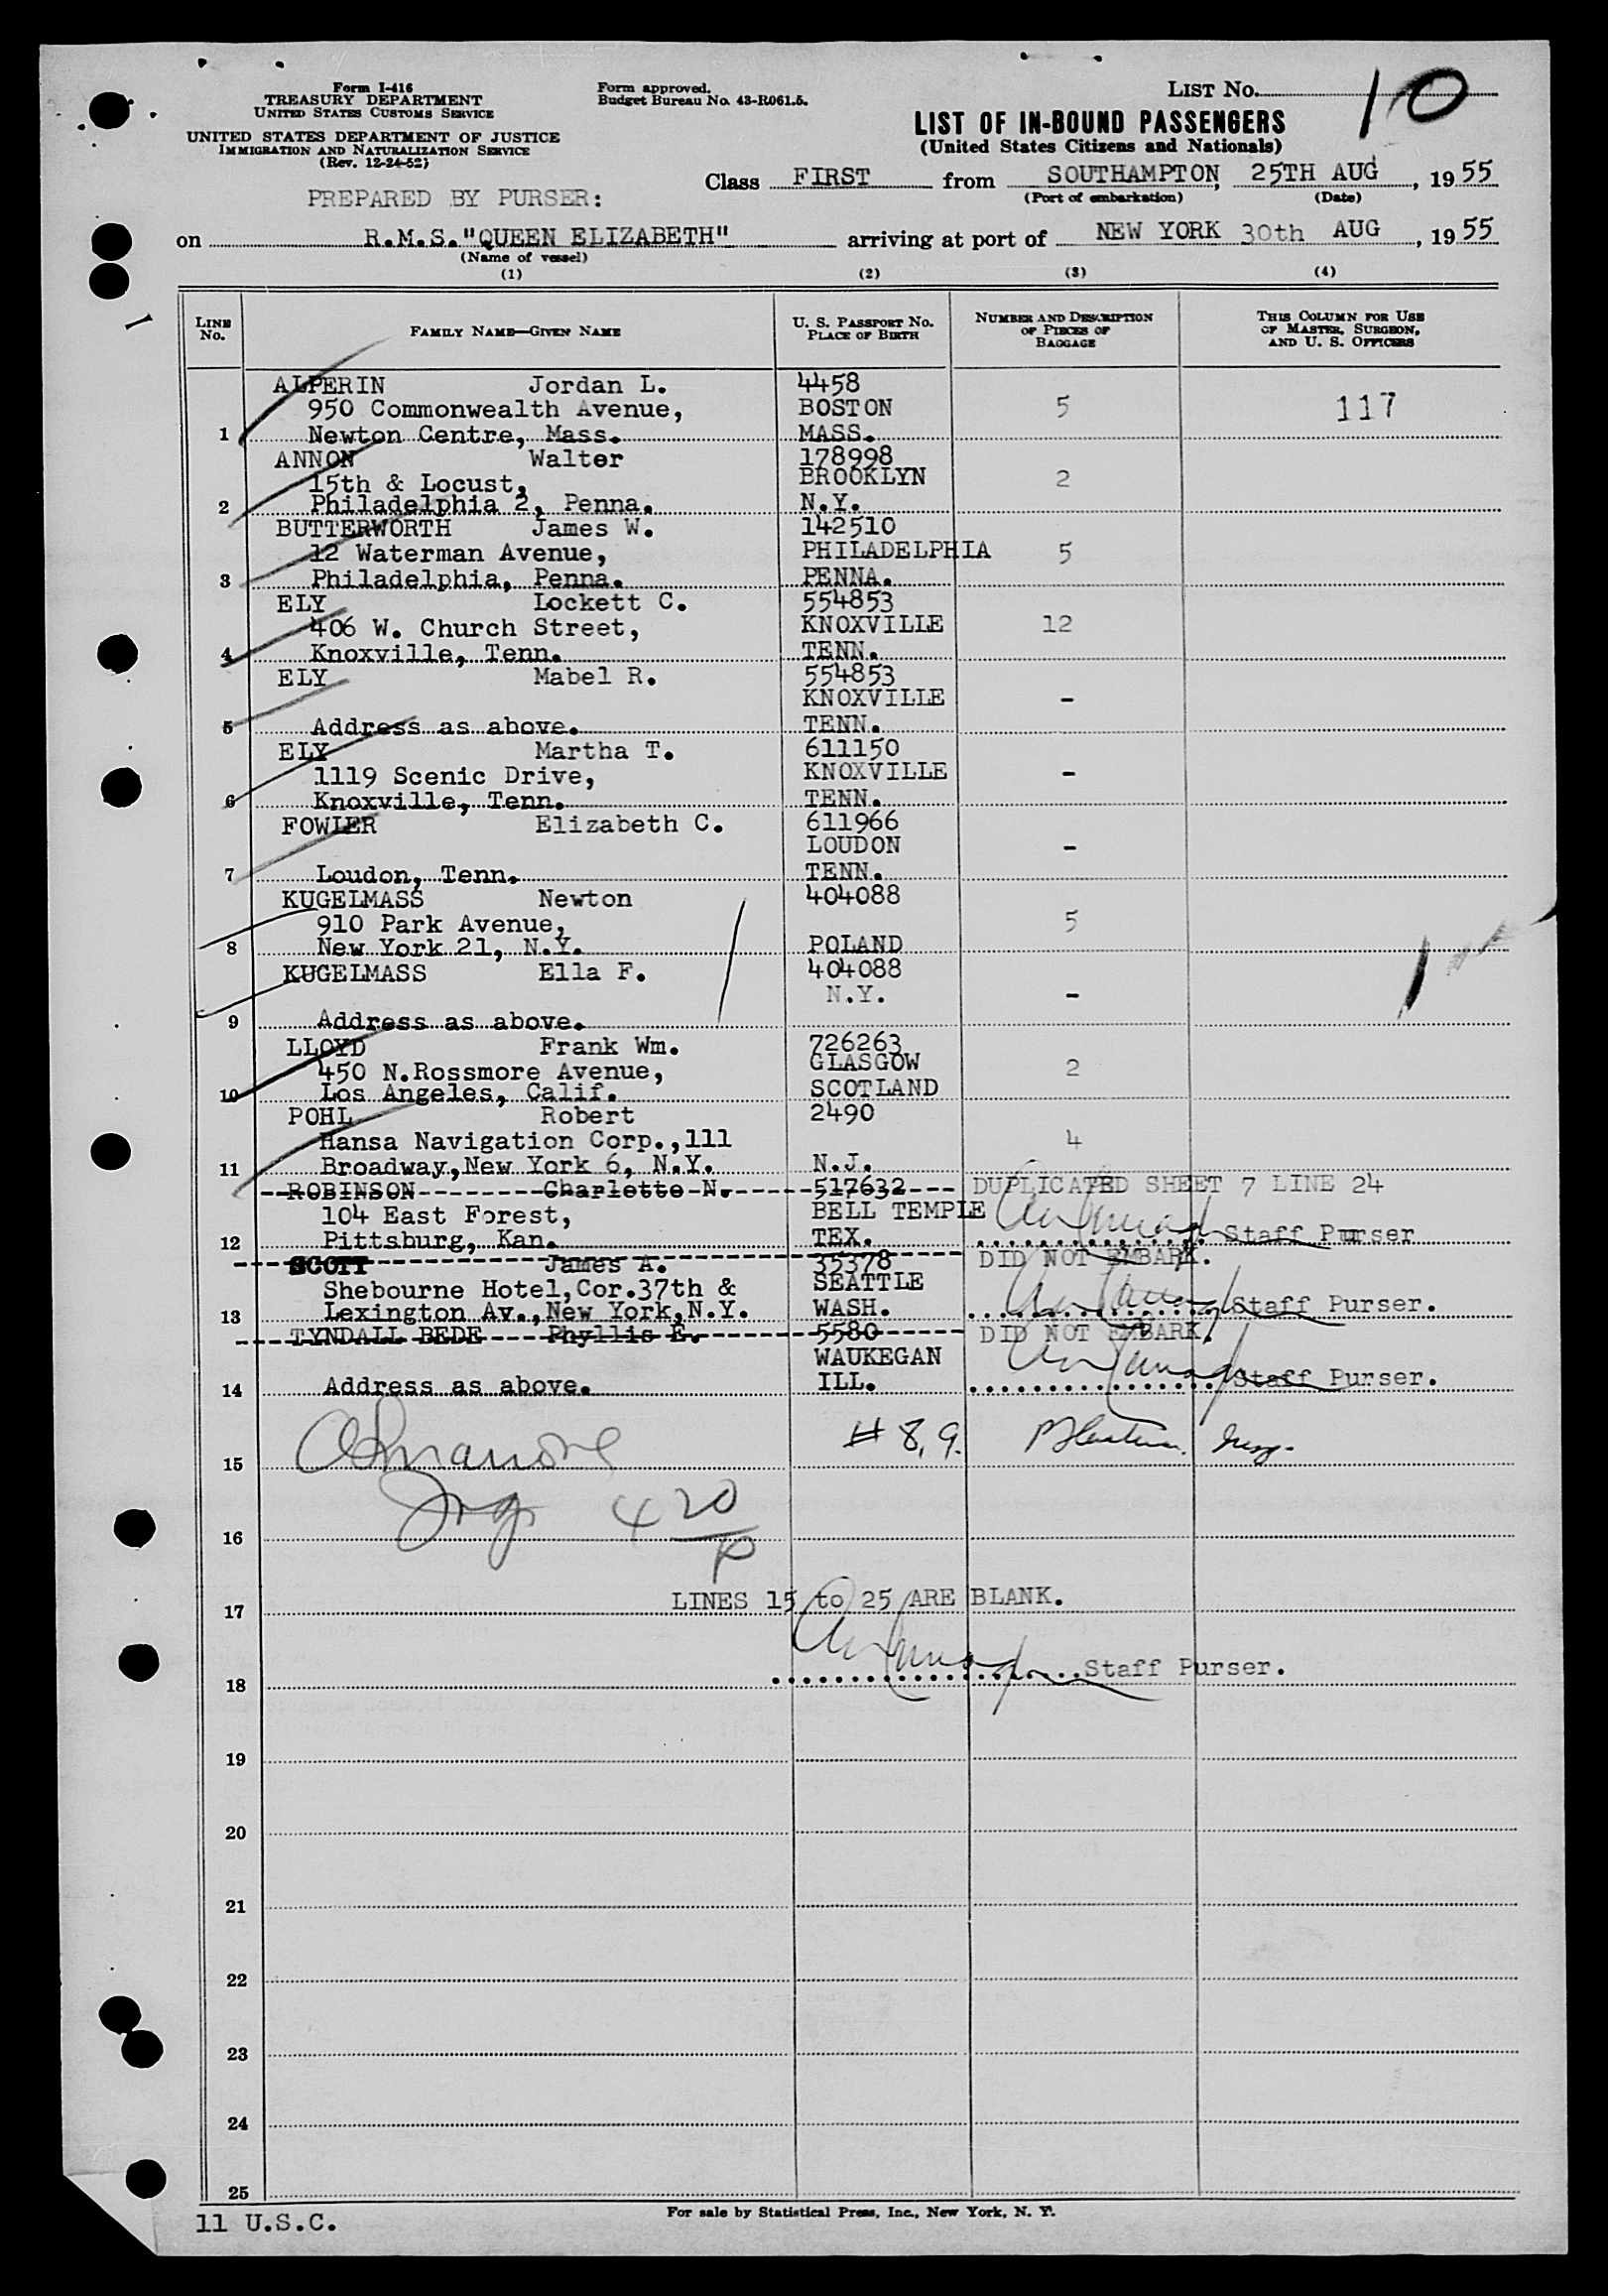 Form I-416
TREASURY DEPARTMENT
UNITED STATES CUSTOMS SERVICE
UNITED STATES DEPARTMENT OF JUSTICE
IMMIGRATION AND NATURALIZATION SERVICE
(Rev. 12-24-52)
Form approved.
Budget Bureau No. 43-R061.5.
LIST No. 10
LIST OF IN-BOUND PASSENGERS
(United States Citizens and Nationals)
Class FIRST from SOUTHAMPTON, 25TH AUG, 1955
(Port of embarkation) (Date)
PREPARED BY PURSER:
on R.M.S."QUEEN ELIZABETH" arriving at port of NEW YORK 30th AUG, 1955
(Name of vessel)
(1) (2) (3) (4)
LINE No. FAMILY NAME—GIVEN NAME U. S. PASSPORT No. PLACE OF BIRTH NUMBER AND DESCRIPTION OF PIECES OF BAGGAGE THIS COLUMN FOR USE OF MASTER, SURGEON, AND U. S. OFFICERS
ALPERIN Jordan L. 4458
950 Commonwealth Avenue, BOSTON 5 117
1 Newton Centre, Mass. MASS.
ANNON Walter 178998
15th & Locust, BROOKLYN 2
2 Philadelphia 2, Penna. N.Y.
BUTTERWORTH James W. 142510
12 Waterman Avenue, PHILADELPHIA 5
3 Philadelphia, Penna. PENNA.
ELY Lockett C. 554853
406 W. Church Street, KNOXVILLE 12
4 Knoxville, Tenn. TENN.
ELY Mabel R. 554853
KNOXVILLE -
5 Address as above. TENN.
ELY Martha T. 611150
1119 Scenic Drive, KNOXVILLE -
6 Knoxville, Tenn. TENN.
FOWLER Elizabeth C. 611966
LOUDON -
7 Loudon, Tenn. TENN.
KUGELMASS Newton 404088
910 Park Avenue, 5
8 New York 21, N.Y. POLAND
KUGELMASS Ella F. 404088
N.Y. -
9 Address as above.
LLOYD Frank Wm. 726263
450 N.Rossmore Avenue, GLASGOW 2
10 Los Angeles, Calif. SCOTLAND
POHL Robert 2490
Hansa Navigation Corp.,111 4
11 Broadway,New York 6, N.Y. N.J.
ROBINSON Charlotte N. 517632 DUPLICATED SHEET 7 LINE 24
104 East Forest, BELL TEMPLE
12 Pittsburg, Kan. TEX. Staff Purser
SCOTT James A. 35378 DID NOT EMBARK.
Shebourne Hotel,Cor.37th & SEATTLE
13 Lexington Av.,New York,N.Y. WASH. Staff Purser.
TYNDALL BEDE Phyllis E. 5580 DID NOT EMBARK.
WAUKEGAN
14 Address as above. ILL. Staff Purser.
# 8, 9.
15
4 20
16
LINES 15 to 25 ARE BLANK.
17
Staff Purser.
18
19
20
21
22
23
24
25
11 U.S.C.
For sale by Statistical Press, Inc., New York, N. Y.